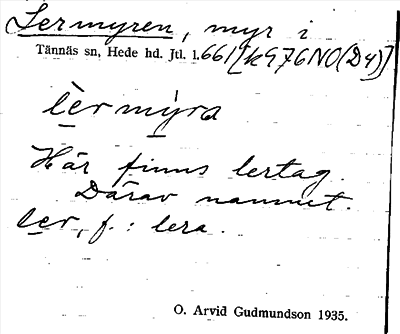 Lermyren, myr i
Tännäs sn, Hede hd. Jtl. l. 661[k976NO(D4)]
lèrmýra
Här finns lertag.
Därav namnet.
ler, f.: lera.
O. Arvid Gudmundson 1935.